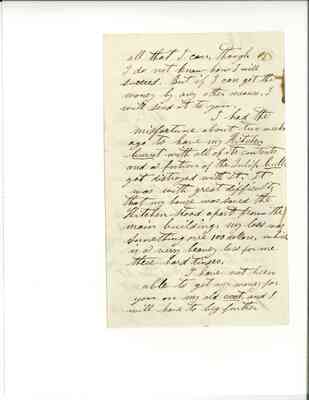 all that I can, though
I do not know how I will
succeed. But if I can get the
money by any other means, I
will send it to you.
I had the
misfortune about two weeks
ago to have my Kitchen
burnt with all of its contents
and a portion of the
got distroyed with it. It
was with great difficulty
that my house was saved the
Kitchen stood apart from the
main building, my loss was
something over 100 dolars, which
is a very heavy loss for me
these hard times.
I have not been
able to get any money for
you on my old and I
will have to beg further